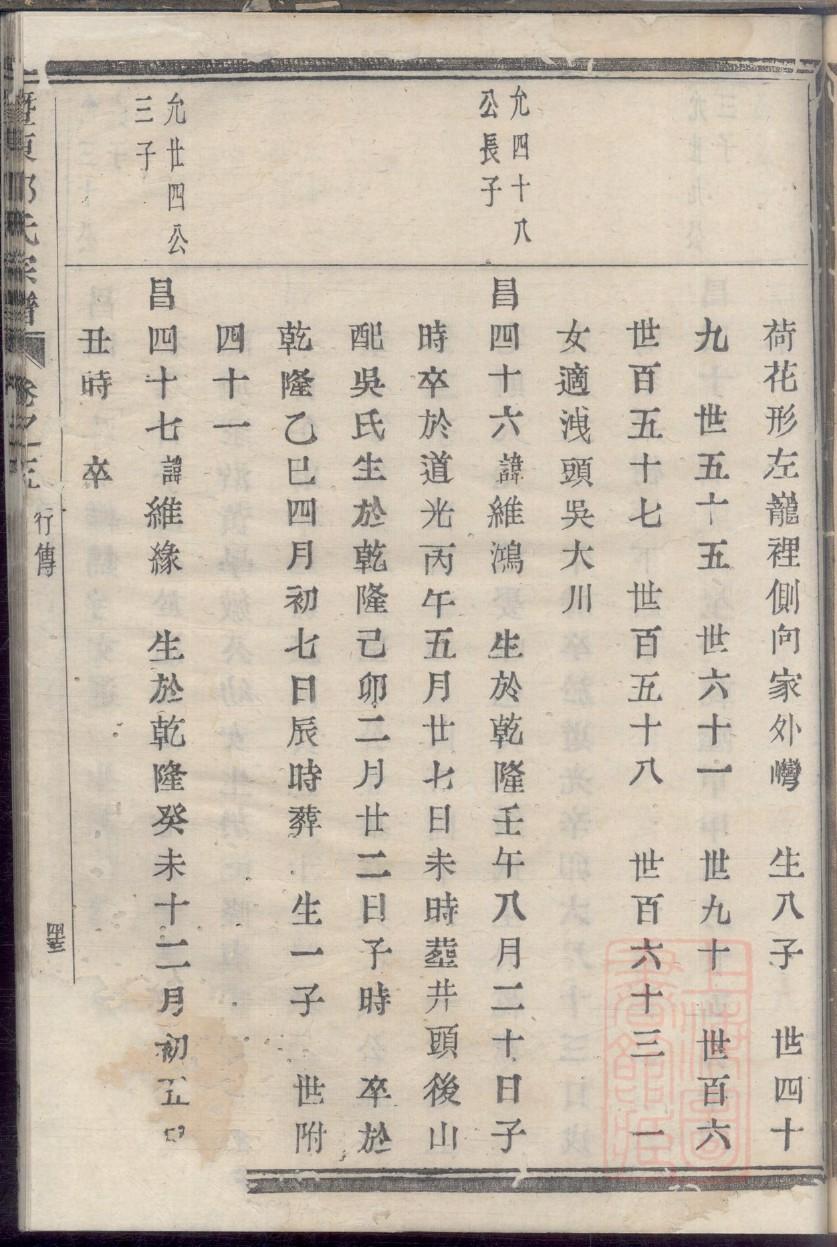 荷花形左龍裡側向家外灣　生八子　世四十
九　世五十五　世六十一　世九十四　世百六
世百五十七　世百五十八　世百六十三　一
女適洩頭吳大川
允四十八
公長子
昌四十六諱維鴻　生於乾隆壬午八月二十日子
時卒於道光丙午五月廿七日未時塟井頭後山
配吳氏生於乾隆己卯二月廿二日子時　卒於
乾隆乙巳四月初七日辰時葬　生一子　世附
四十一
允廿四公
三子
昌四十七諱維緣　生於乾隆癸未十二月初五日
丑時　卒
暨東　氏宗譜　卷之三　行傳